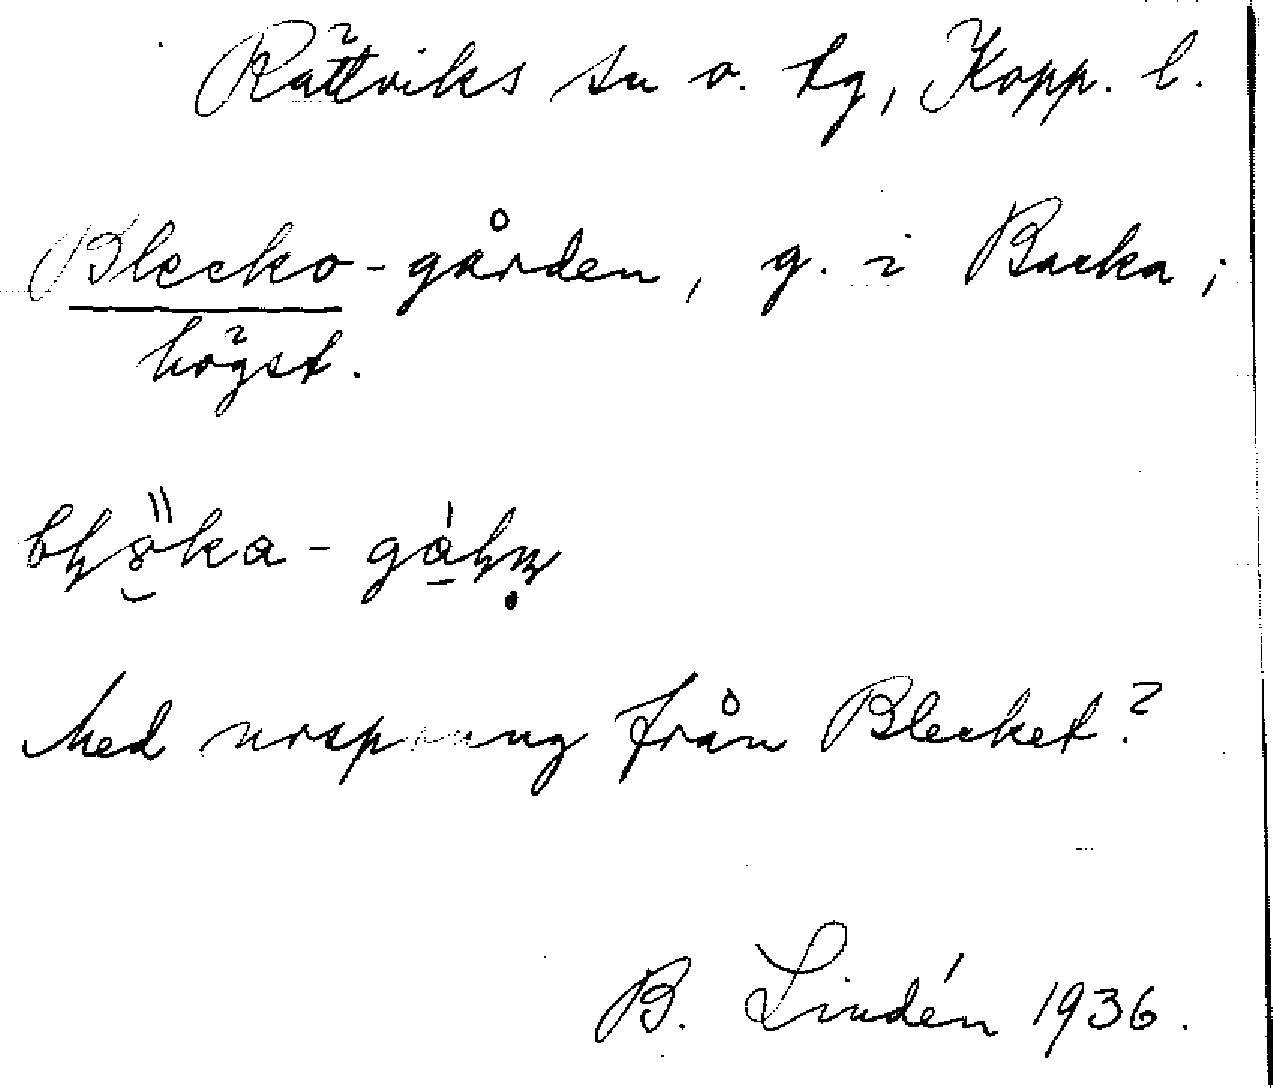 Rättviks sn o. tg, Kopp. l.
Blecko-gården, g. i Backa;
högst.
Med ursprung från Blecket?
B. Lindén 1936.